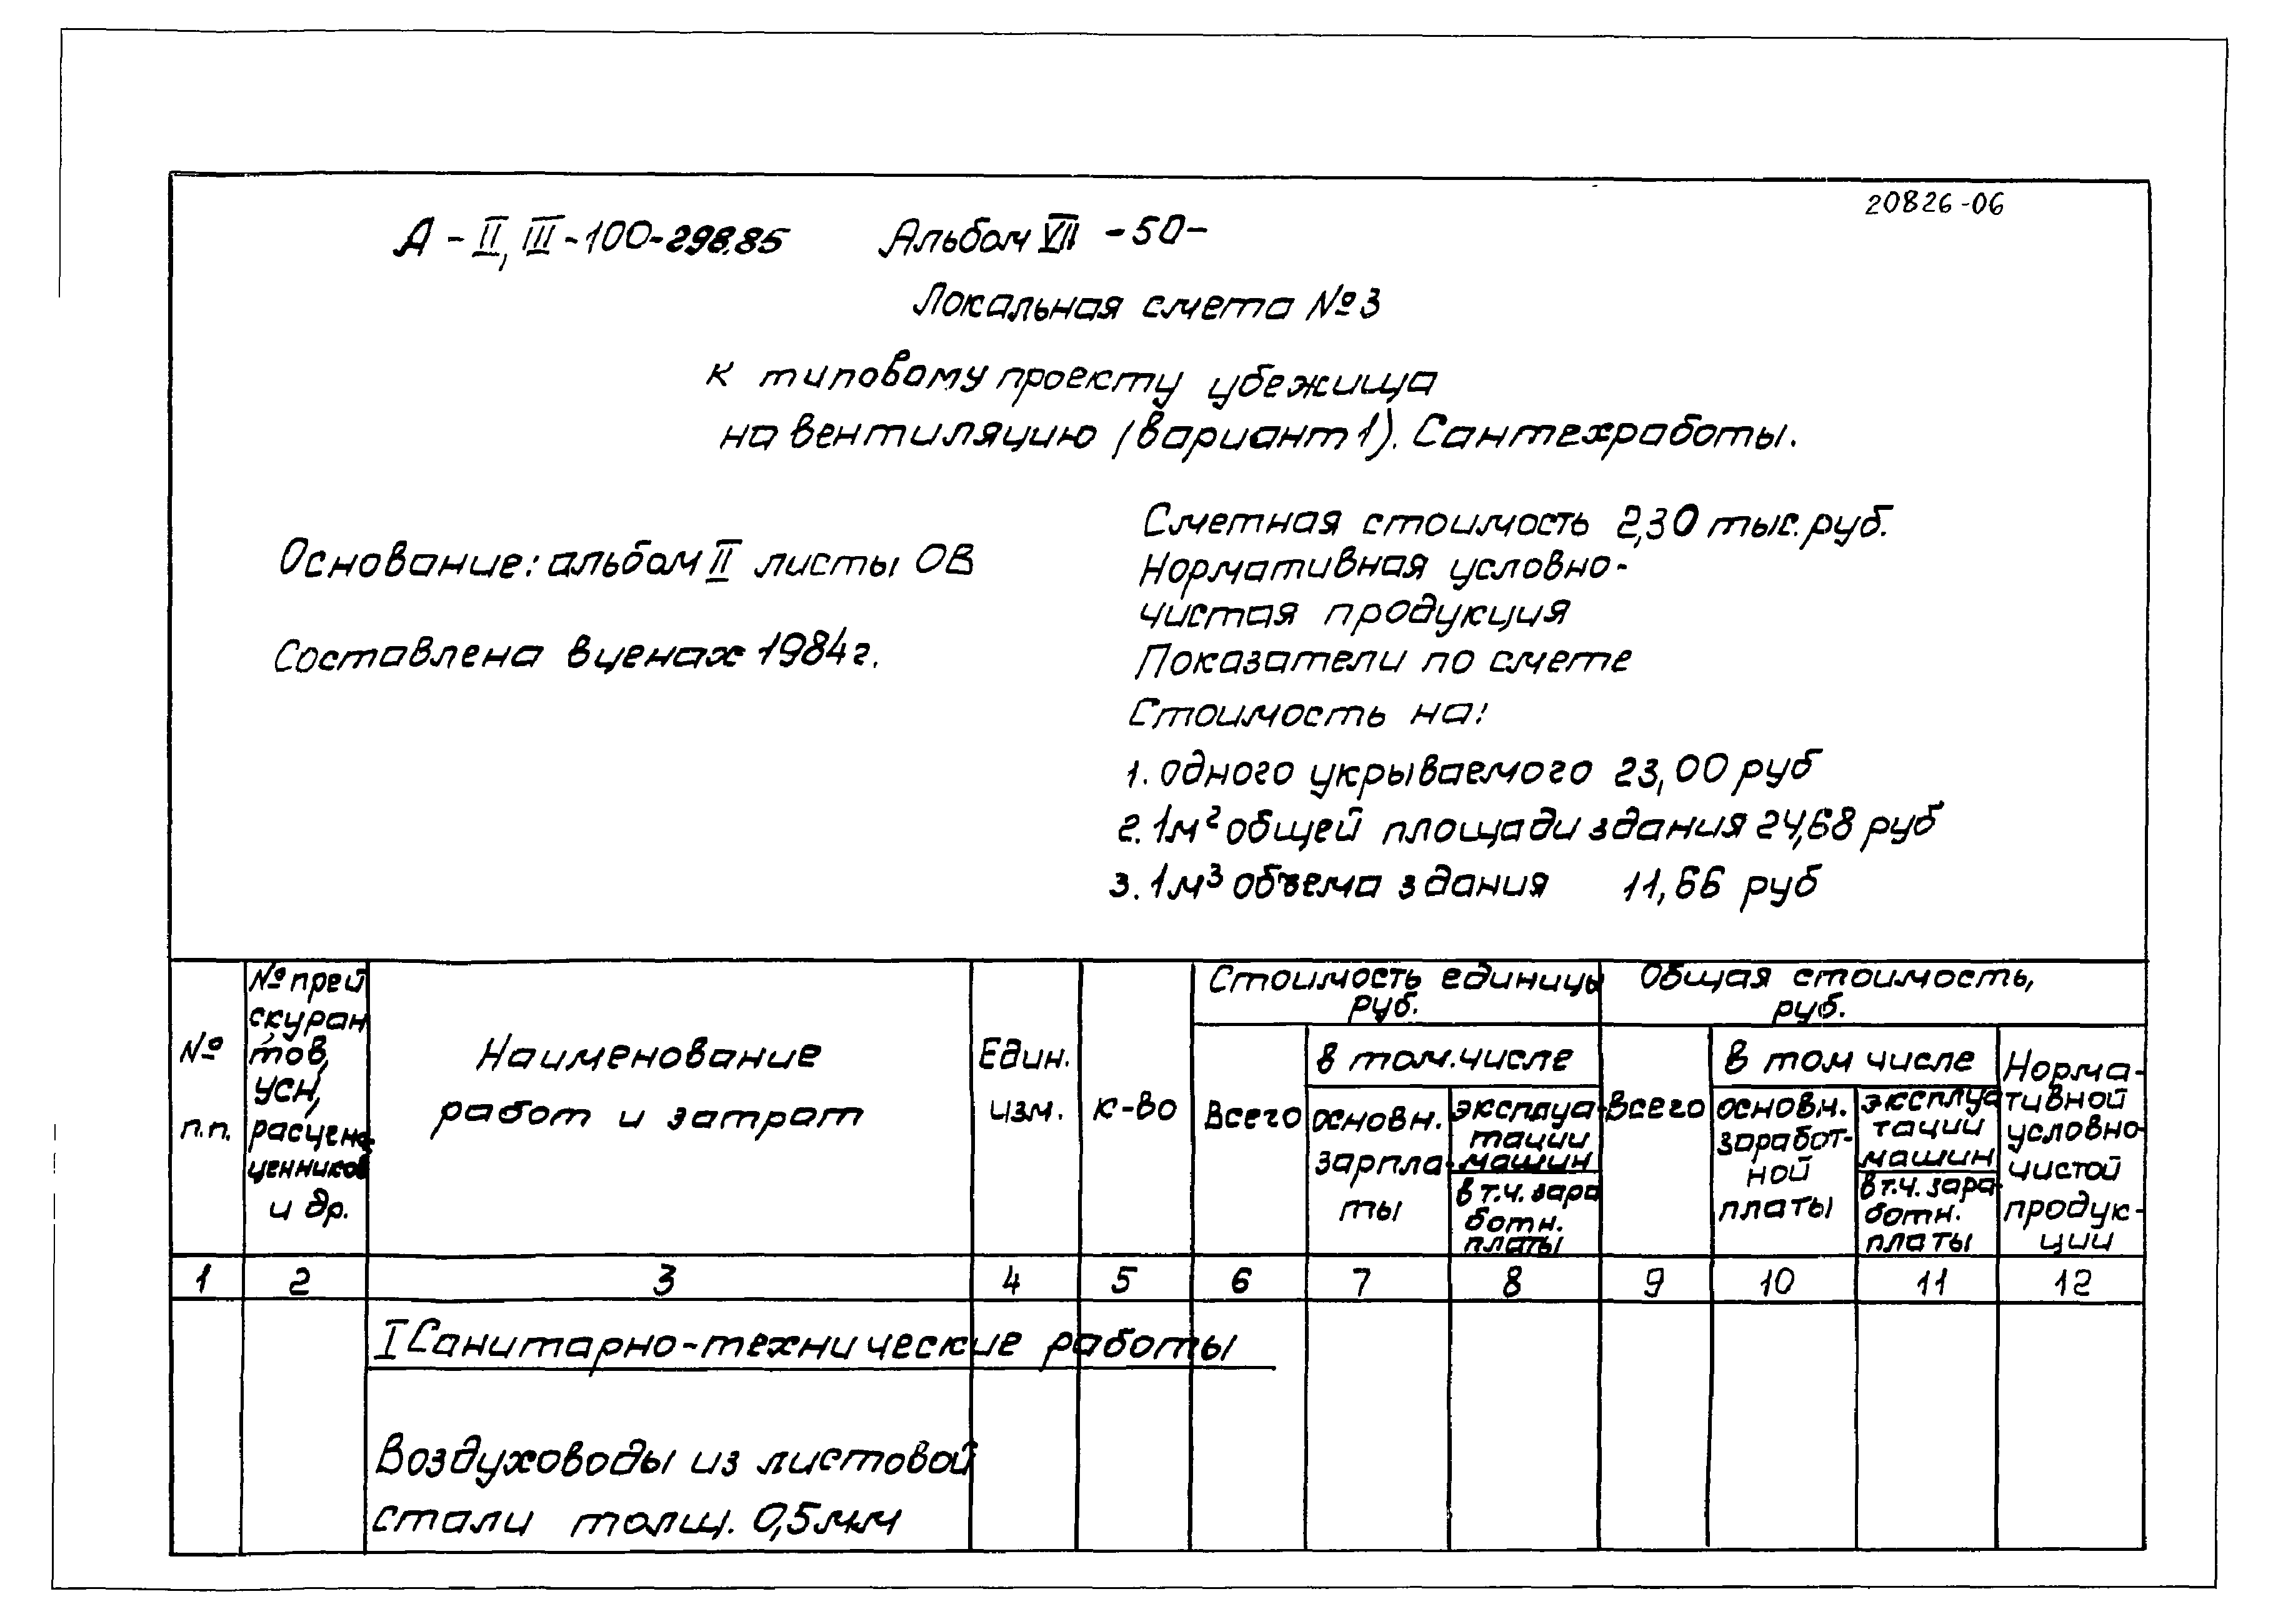 20826-06
А-II, III-100-298.85 Альбом VII -50-
Локальная смета №3
к типовому проекту убежища
на вентиляцию (вариант 1). Сантехработы.
Основание: альбом II листы ОВ
Составлена в ценах 1984г.
Сметная стоимость 2,30 тыс.руб.
Нормативная условно-
чистая продукция
Показатели по смете
Стоимость на:
1. одного укрываемого 23,00 руб
2. 1м² общей площади здания 24,68 руб
3. 1м³ объема здания 11,66 руб
№
п.п.
№ прей
скуран
тов,
УСН,
расцен.
ценников
и др.
Наименование
работ и затрат
Един.
изм.
к-во
Стоимость единицы
руб.
Всего
в том.числе
основн.
зарпла-
ты
эксплуа-
тации
машин
в т.ч. зара
ботн.
платы
Общая стоимость,
руб.
Всего
в том числе
основн.
заработ-
ной
платы
эксплуа
тации
машин
в т.ч. зара-
ботн.
платы
Норма-
тивной
условно-
чистой
продук-
ции
1 2 3 4 5 6 7 8 9 10 11 12
I Санитарно-технические работы
Воздуховоды из листовой
стали толщ. 0,5мм